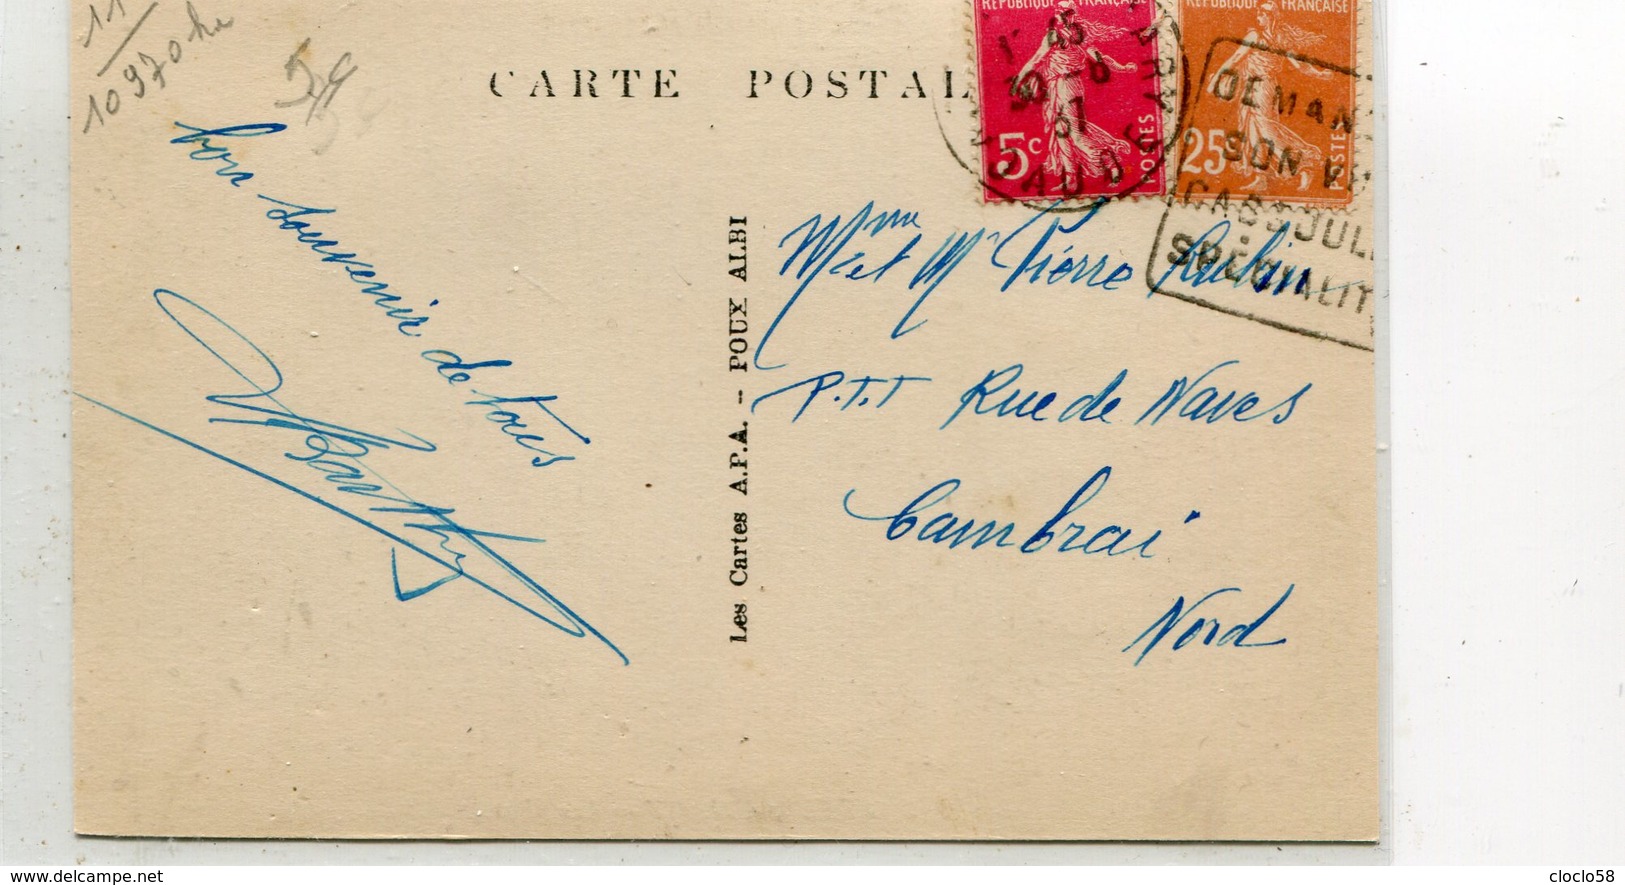 11
10970
59
CARTE POSTAL
RÉPUBLIQUE FRANÇAISE
5c
POSTES
RÉPUBLIQUE FRANÇAISE
25
POSTES
45
30-8
37
AUDE
DEMAN
SON
CASSOUL
SPÉCIALIT
bon souvenir de tous
Barthy
Les Cartes A.P.A. -- POUX ALBI
Mme et Mr Pierre
P.T.T Rue de Naves
Cambrai
Nord
delcampe.net
cloclo58